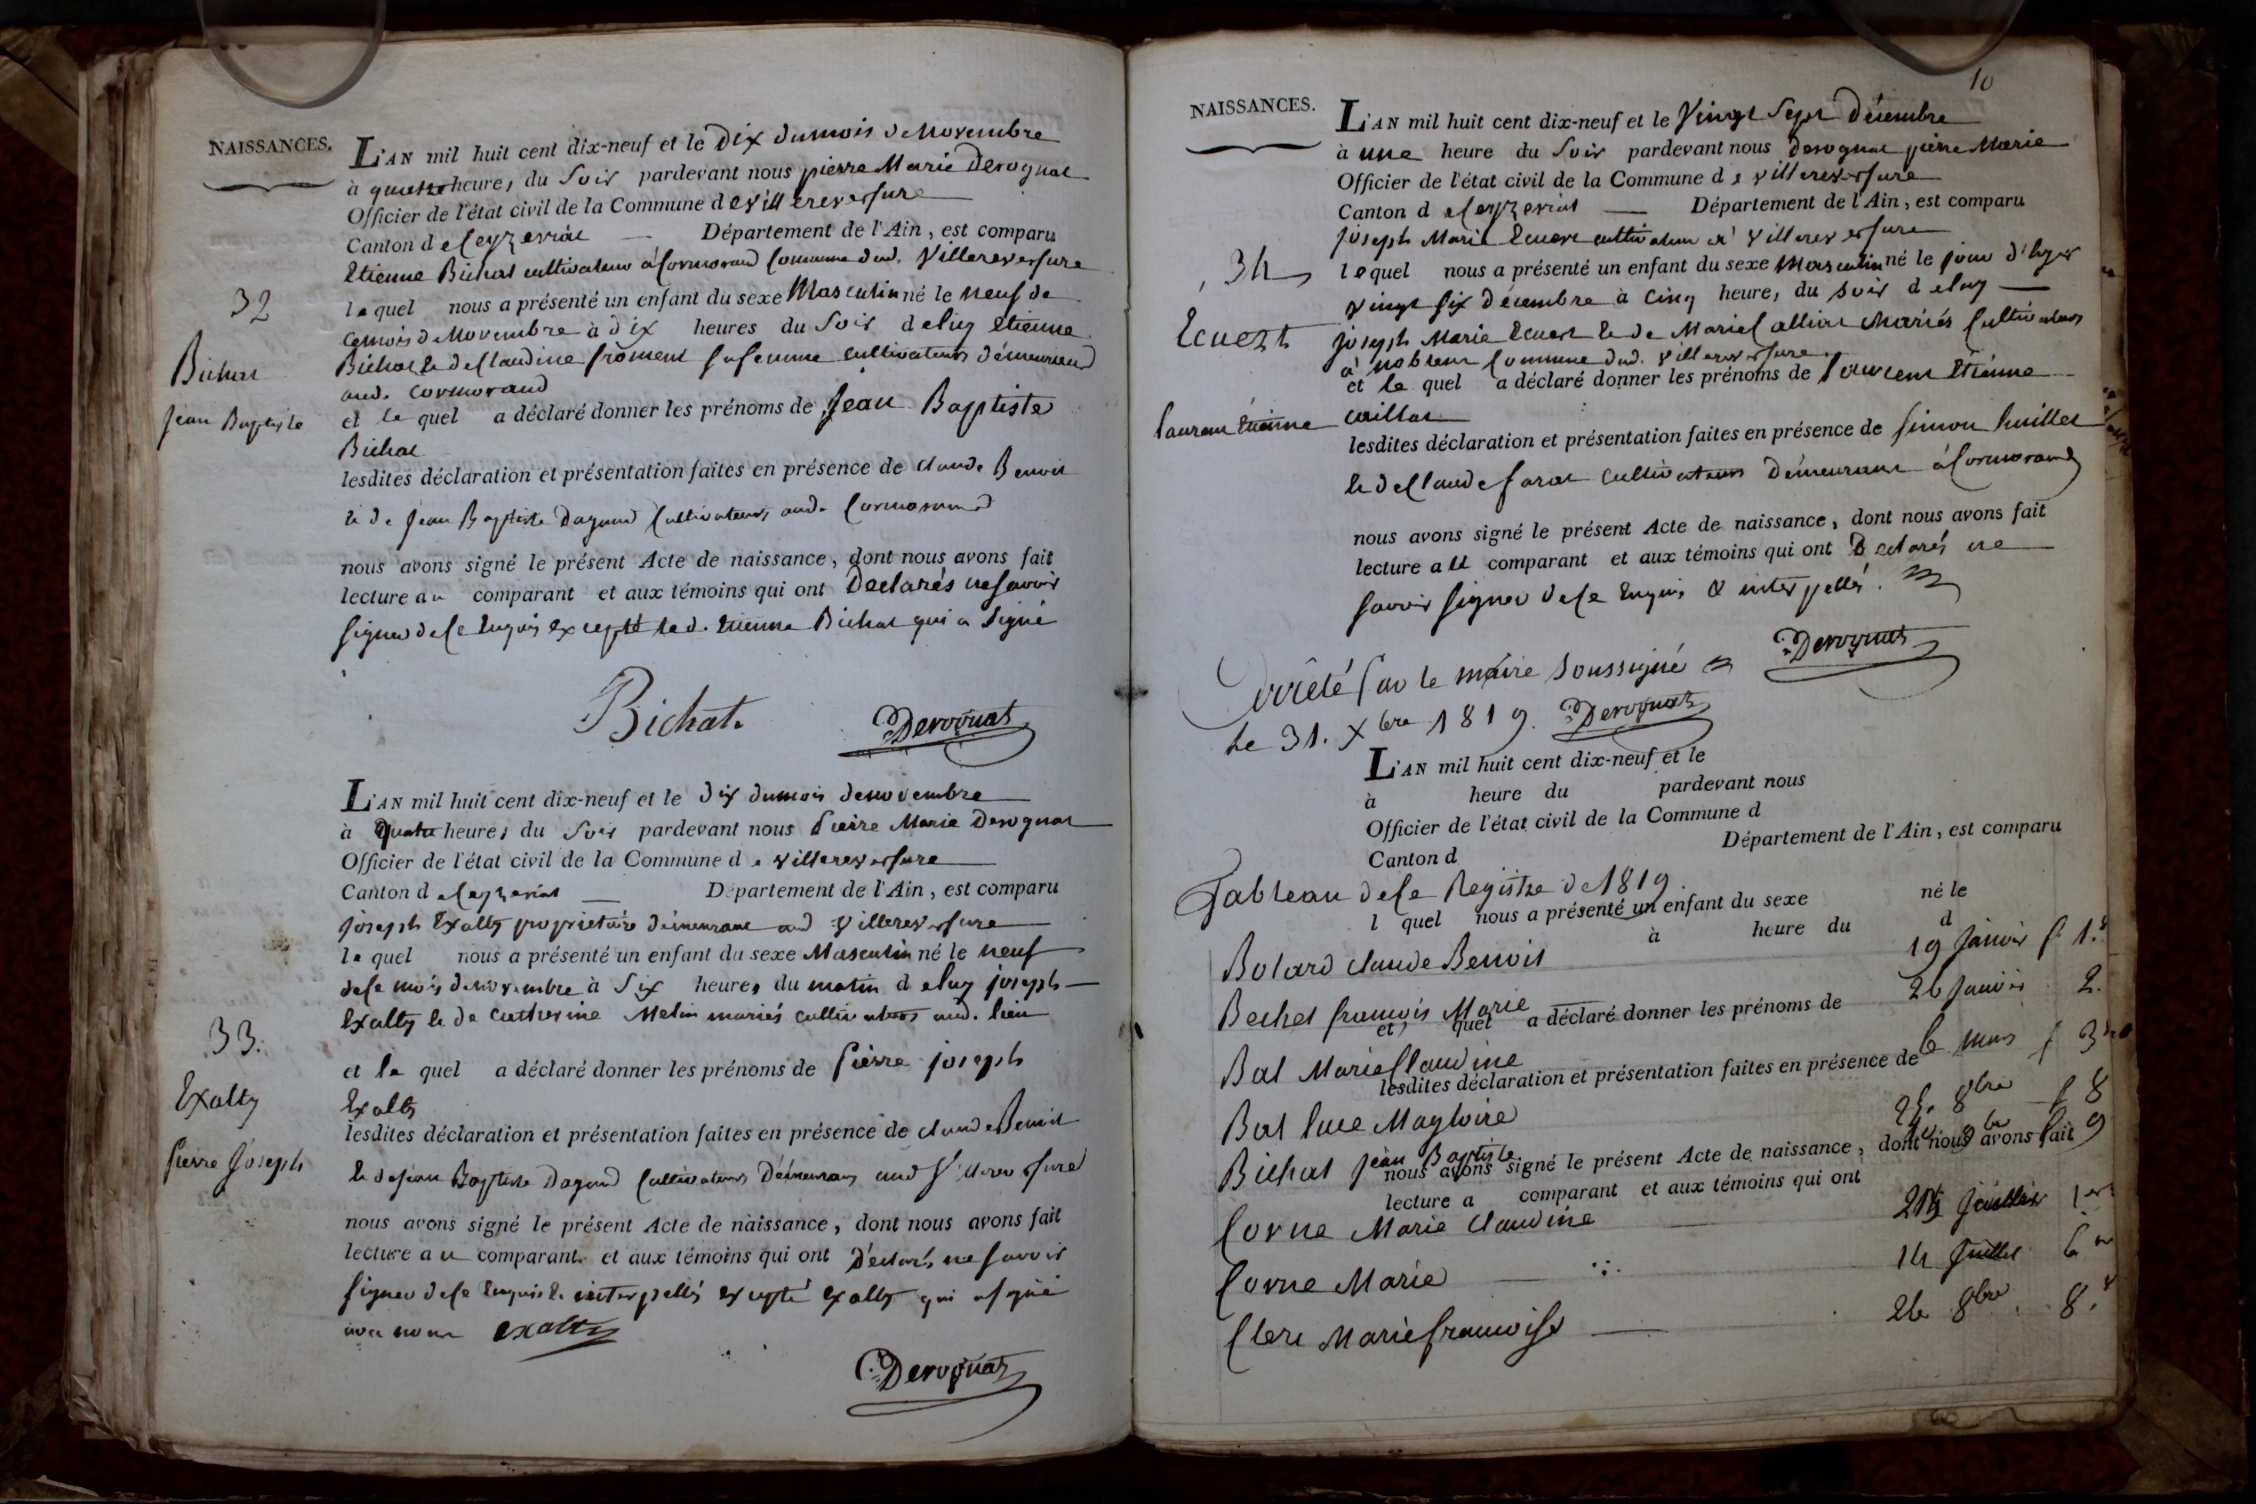 NAISSANCES.
L'AN mil huit cent dix-neuf et le Dix dumois deNovembre
à quatre heures du Soir pardevant nous pierre Marie Derognat
Officier de l'état civil de la Commune de Villereversure
Canton de Ceyzeriat Département de l'Ain, est comparu
Etienne Bichat cultivateur à Cormorand Commune dud. Villereversure
32
lequel nous a présenté un enfant du sexe Masculin né le neuf de
cemois deNovembre à dix heures du Soir de luy etienne
Bichat
Bichat & de Claudine froment sa femme cultivateurs démeurand
aud. Cormorand
Jean Baptiste
et le quel a déclaré donner les prénoms de Jean Baptiste
Bichat
lesdites déclaration et présentation faites en présence de claude Benoit
& de Jean Baptiste Dagand Cultivateurs aud. Cormorand
nous avons signé le présent Acte de naissance, dont nous avons fait
lecture au comparant et aux témoins qui ont Déclarés ne savoir
signer de ce Enquis excepté led. Etienne Bichat qui a Signé
Bichat.
Derognat
L'AN mil huit cent dix-neuf et le dix dumois denovembre
à Quatre heures du Soir pardevant nous Pierre Marie Derognat
Officier de l'état civil de la Commune de Villereversure
Canton de Ceyzeriat Département de l'Ain, est comparu
joseph Exalty proprietaire démeurant aud Villereversure
le quel nous a présenté un enfant du sexe Masculin né le neuf
dece mois denovembre à Six heures du matin de luy joseph
33.
Exalty & de Catherine Melin mariés cultivateurs aud. lieu
et le quel a déclaré donner les prénoms de Pierre joseph
Exalty
Exalty
lesdites déclaration et présentation faites en présence de claude Benoit
Pierre Joseph
& de jean Baptiste Dagand Cultivateurs Démeurans aud Villereversure
nous avons signé le présent Acte de naissance, dont nous avons fait
lecture au comparant et aux témoins qui ont Déclarés ne savoir
signer de ce Enquis & interpellés excepté Exalty qui a signé
avec nous exalty
Derognat
10
NAISSANCES.
L'AN mil huit cent dix-neuf et le Vingt Sept Décembre
à une heure du Soir pardevant nous Derognat pierre Marie
Officier de l'état civil de la Commune de Villereversure
Canton de Ceyzeriat Département de l'Ain, est comparu
joseph Marie Ecuert cultivateur à Villereversure
34
lequel nous a présenté un enfant du sexe Masculin né le jour d'hyer
Vingt six décembre à cinq heures du soir de luy
Ecuert
joseph Marie Ecuert & de Marie Mariés Cultivateurs
à nobleur Commune dud. Villereversure
et le quel a déclaré donner les prénoms de Laurent Etienne
Laurent Etienne
lesdites déclaration et présentation faites en présence de Simon
& de Claude farat cultivateurs Démeurant à Cormorand
nous avons signé le présent Acte de naissance, dont nous avons fait
lecture au comparant et aux témoins qui ont Déclarés ne
savoir signer de ce Enquis & interpellés.
Derognat
Arrêté par le maire Soussigné
Le 31. Xbre 1819. Derognat
L'AN mil huit cent dix-neuf et le
à heure du pardevant nous
Officier de l'état civil de la Commune d
Canton d Département de l'Ain, est comparu
Tableau de ce Registre de 1819.
l quel nous a présenté un enfant du sexe né le
à heure du d
Bolard claude Benoit 19 Janvier f 1.
Bechet francois Marie 26 Janvier 2.
et l quel a déclaré donner les prénoms de
Bal Marie Claudine 6 Mars f 3
lesdites déclaration et présentation faites en présence de
Bal luce Magloire 25. 8bre f 8
Bichat Jean Baptiste 9
nous avons signé le présent Acte de naissance, dont nous avons fait
lecture a comparant et aux témoins qui ont
Corne Marie Claudine
Corne Marie 14 Juillet 6
Clerc Marie francoise 26 8bre. 8.